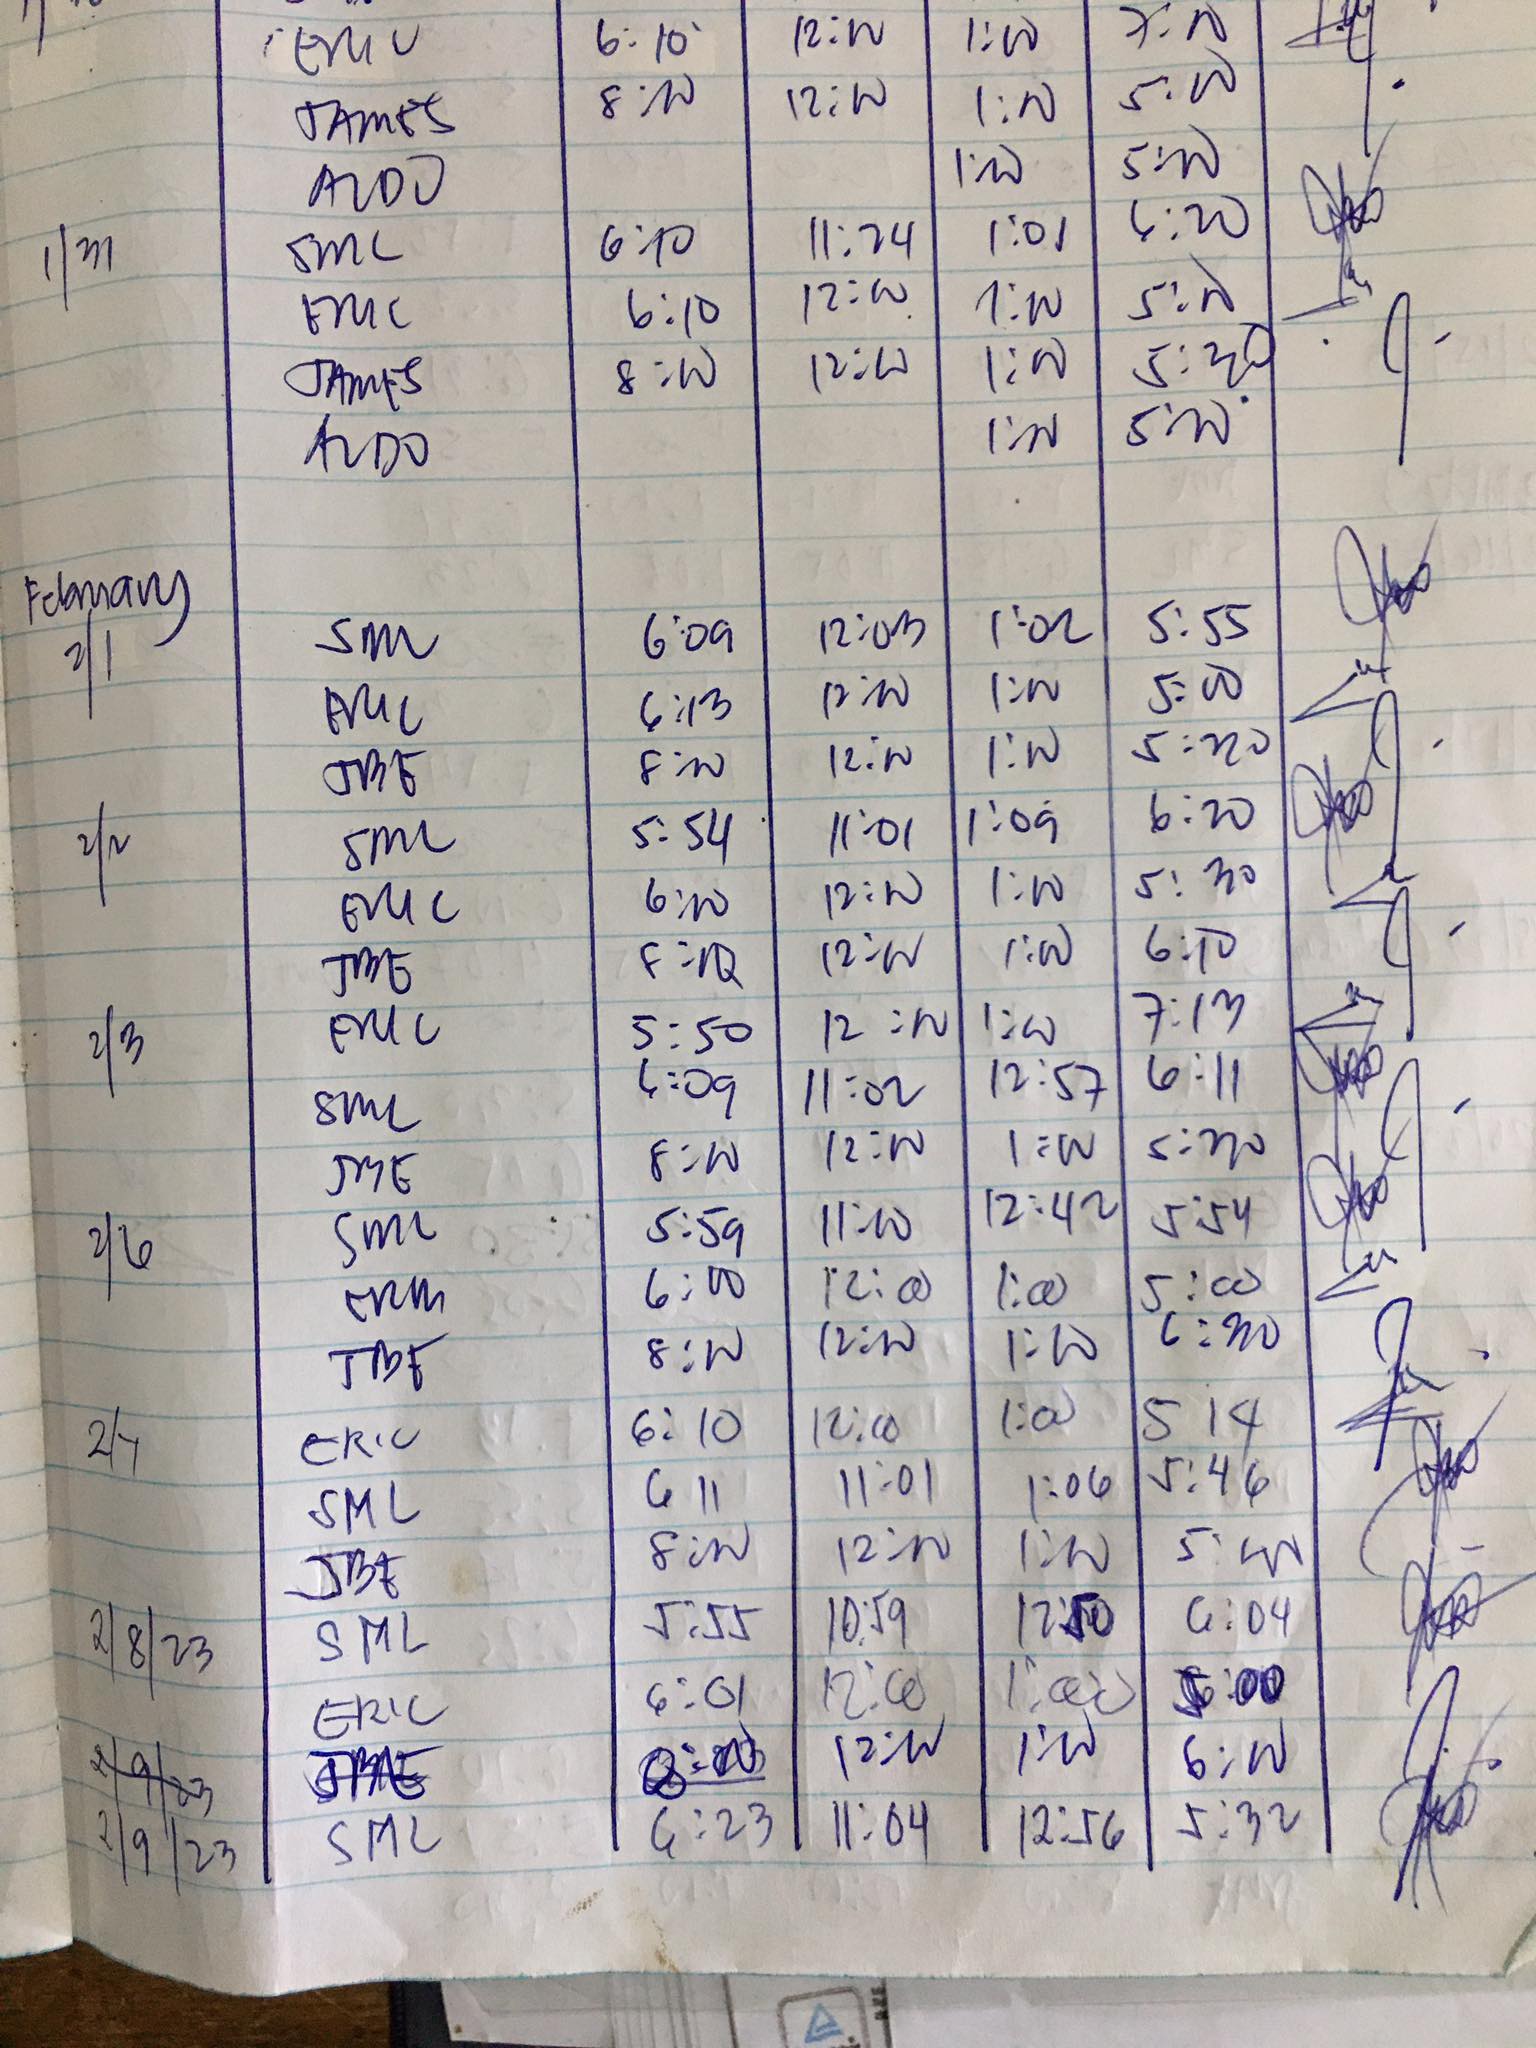 ERIC 6:10 12:00 1:00 7:00
JAMES 8:00 12:00 1:00 5:00
ALDO 1:00 5:00
1/31 SML 6:10 11:24 1:01 6:20
ERIC 6:10 12:00 1:00 5:00
JAMES 8:00 12:00 1:00 5:30
ALDO 1:00 5:00
February
2/1 SML 6:09 12:03 1:02 5:55
ERIC 6:13 12:00 1:00 5:00
JBE 8:00 12:00 1:00 5:30
2/2 SML 5:54 11:01 1:09 6:20
ERIC 6:00 12:00 1:00 5:30
JBE 8:00 12:00 1:00 6:10
2/3 ERIC 5:50 12:00 1:00 7:13
SML 6:09 11:02 12:57 6:11
JBE 8:00 12:00 1:00 5:30
2/6 SML 5:59 11:00 12:42 5:54
6:00 12:00 1:00 5:00
JBE 8:00 12:00 1:00 6:30
2/7 ERIC 6:10 12:00 1:00 5 14
SML 6 11 11:01 1:06 5:46
JBE 8:00 12:00 1:00 5:00
2/8/23 SML 5:55 10:59 12:50 6:04
ERIC 6:01 12:00 1:00
2/9/23 JBE 8:00 12:00 1:00 6:00
2/9/23 SML 6:23 11:04 12:56 5:32